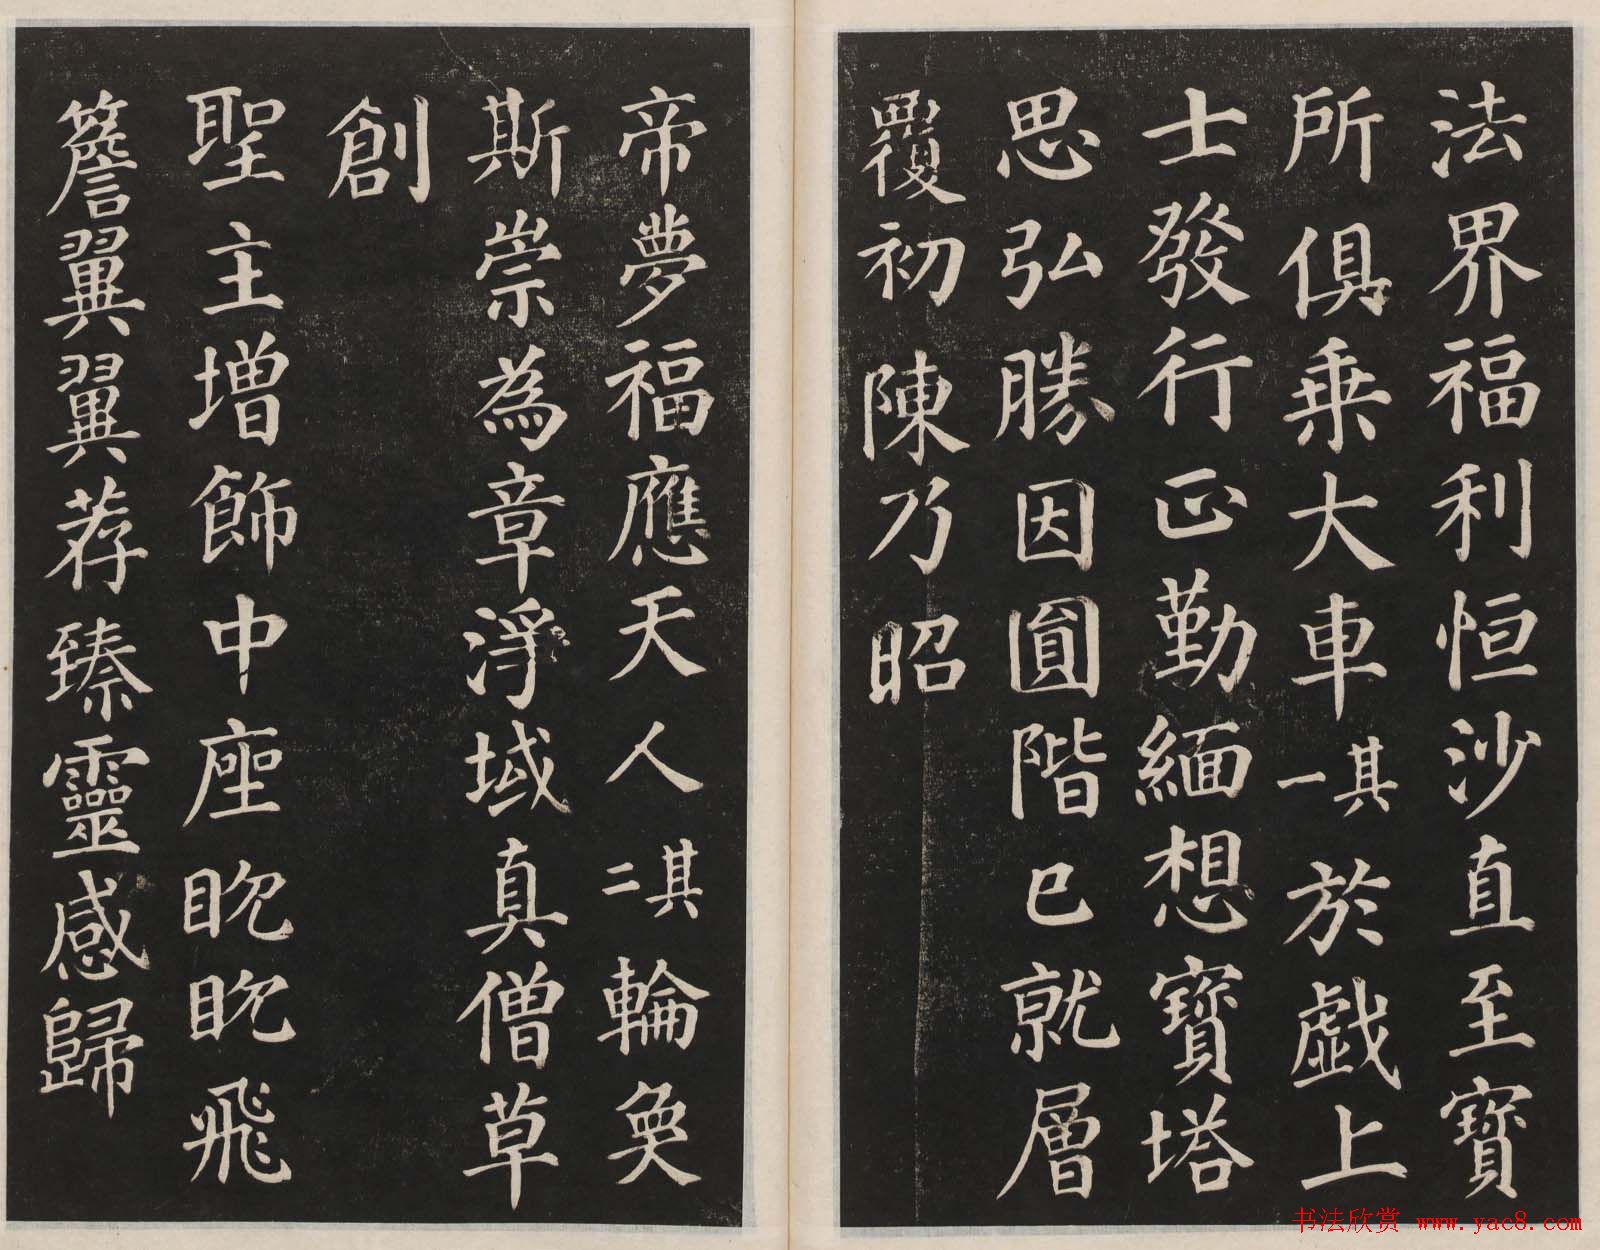 法界福利恒沙直至寶
所俱乗大車其一於戯上
士發行正勤緬想寶塔
思弘勝因圓階已就層
覆初陳乃昭
帝夢福應天人其二輪奐
斯崇為章淨域真僧草
創
聖主增飾中座眈眈飛
簷翼翼荐臻靈感歸
书法欣赏 www.yac8.com